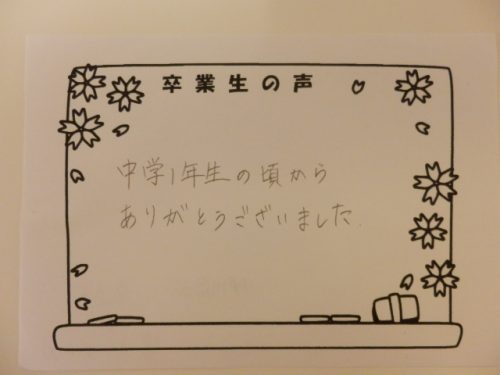 卒業生の声
中学1年生の頃から
ありがとうございました.